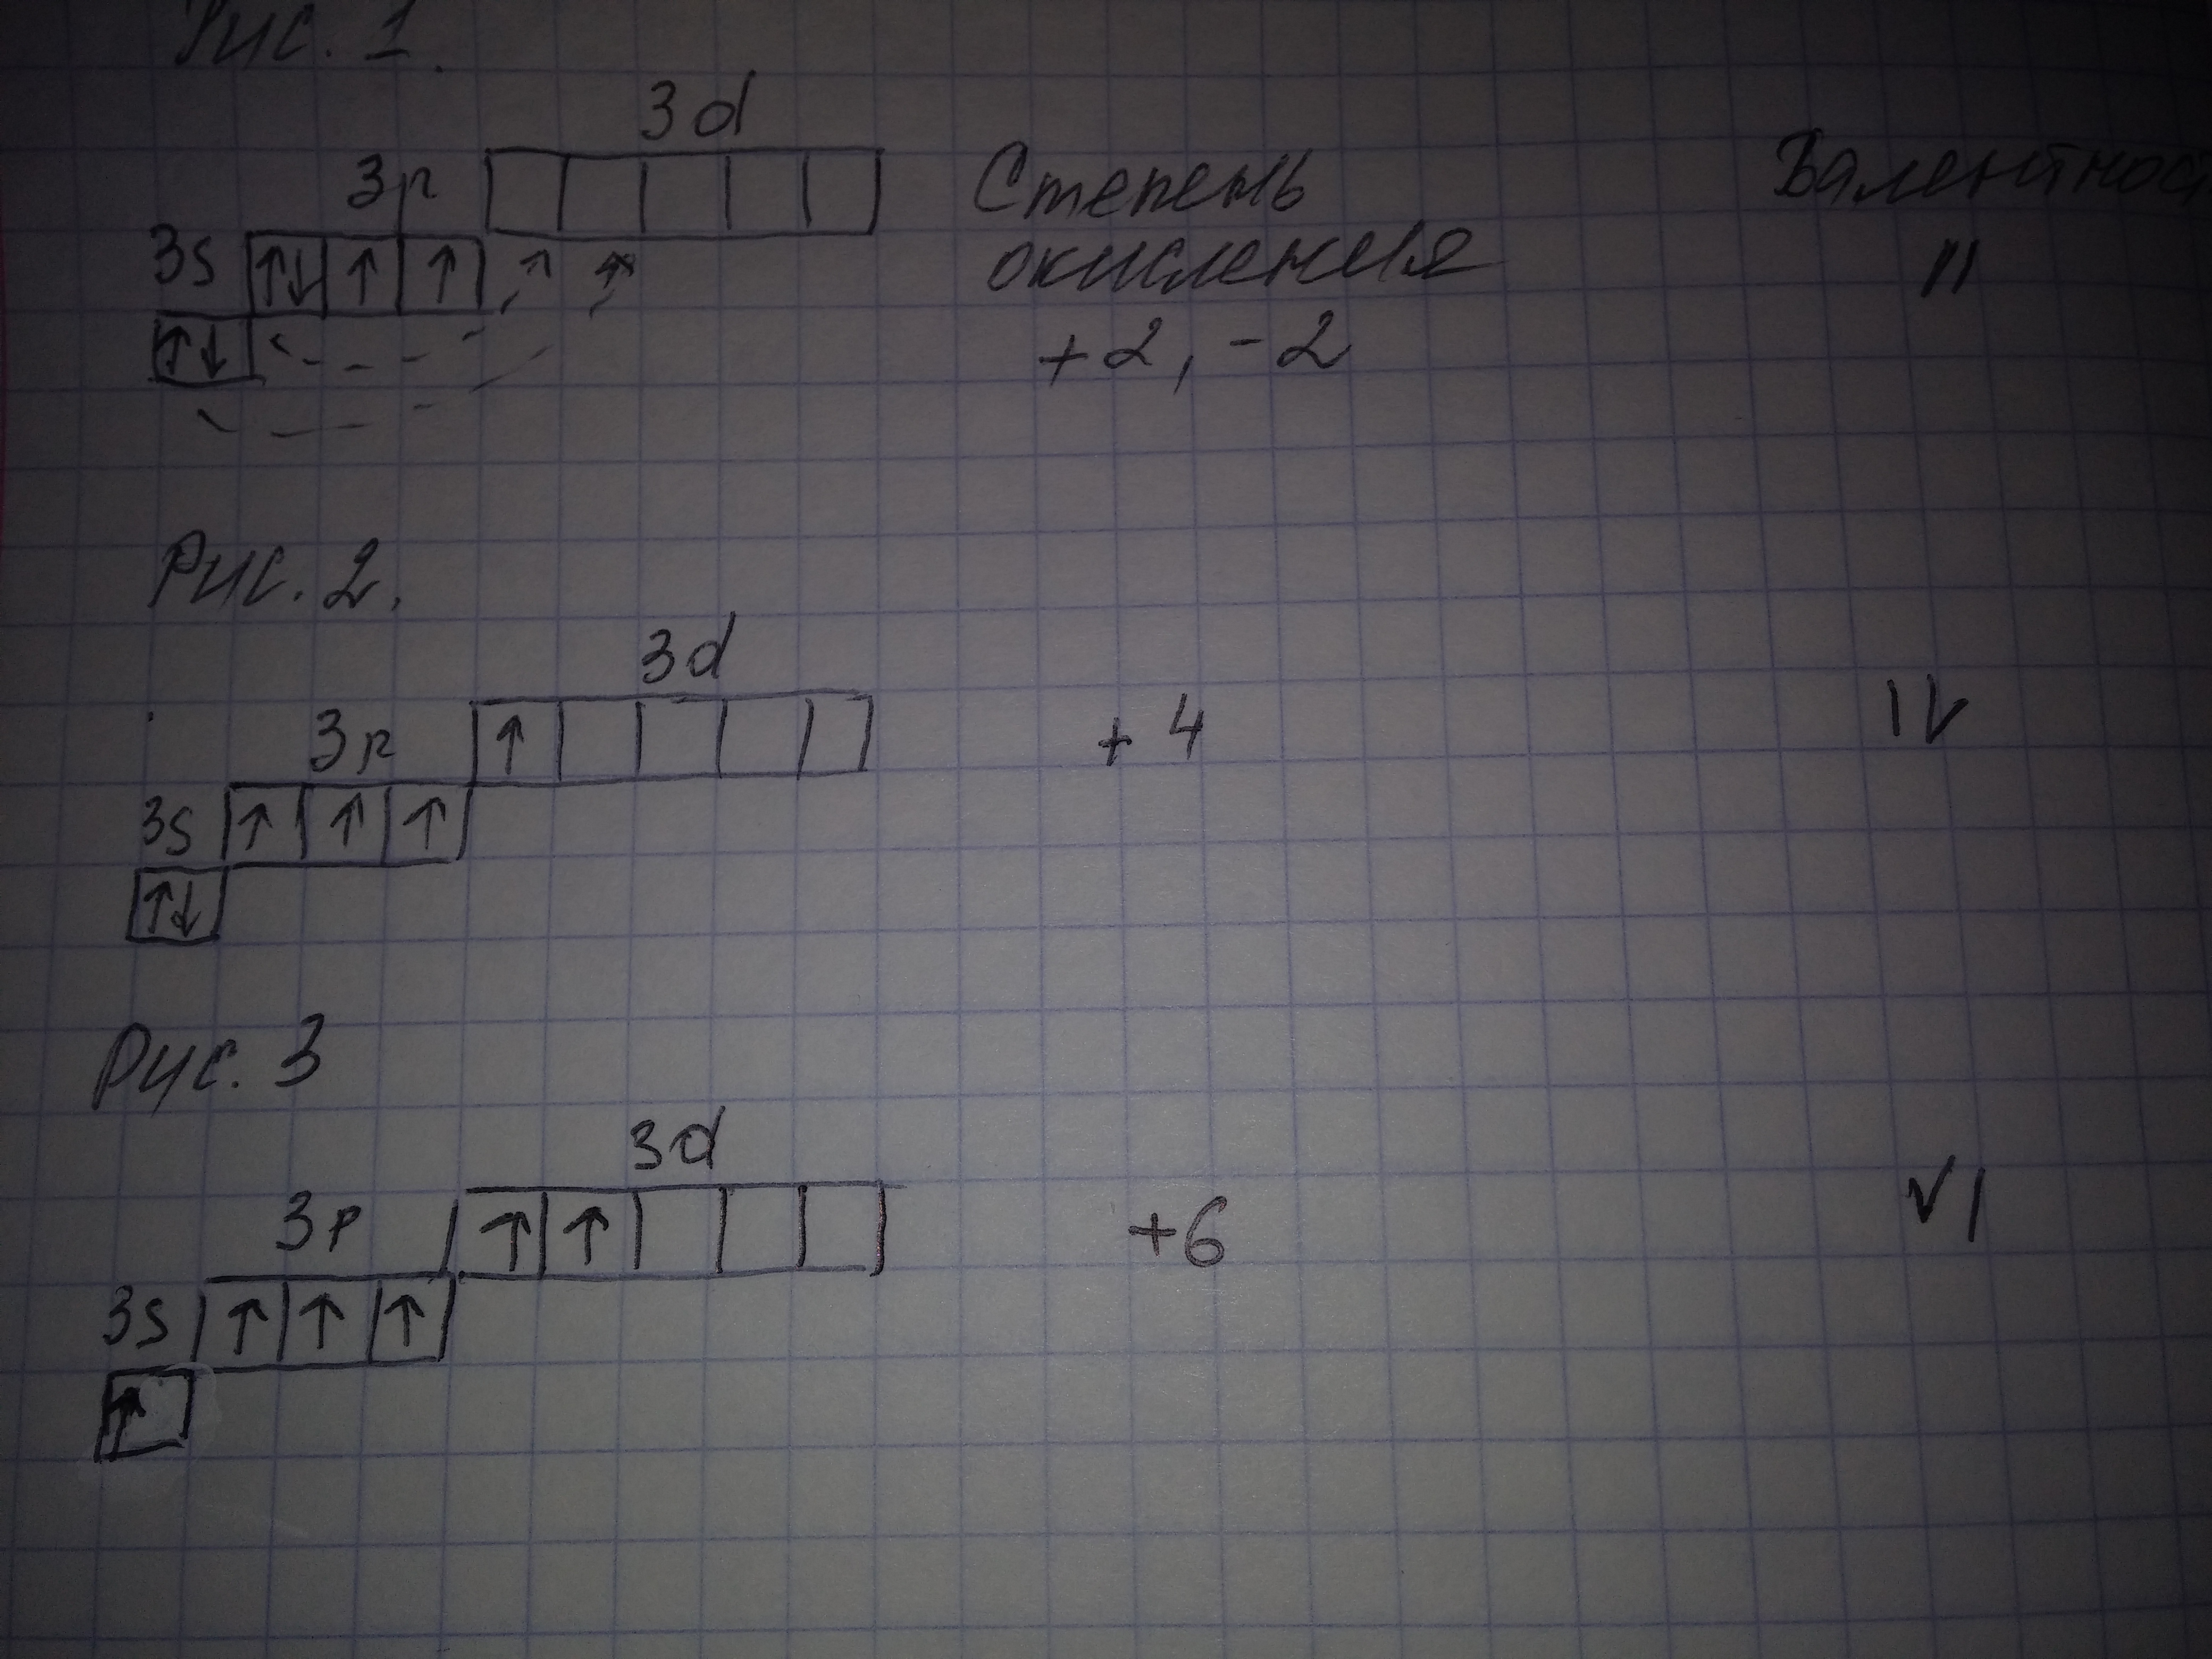 Рис. 1.
3d
3p
3s
↑↓ ↑ ↑ ↑ ↑
↑↓
Степень
окисления
+2, -2
Валентнос
II
Рис. 2.
3d
3p
3s
↑
↑ ↑ ↑
↑↓
+4
IV
Рис. 3
3d
3p
3s
↑ ↑
↑ ↑ ↑
↑
+6
VI